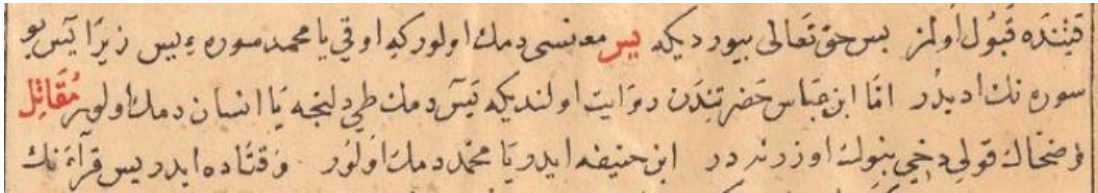 قیتنده قَبُول اولمز بس حق تَعَالی بیوردیکه یس معنسی دمك اولور که اوقی یا محمد سوره ٔ یس زیرَا یس بو
سوره نك ادیدُر امّا ابن عبّاس حَضرتندَن روَایت اولندیکه یَس دمك طی دلنجه یَا انسان دمك اولور مُقَاتِل
و ضحاك قولی دخی بنوك اوزرنه در ابن حنیفه ایدر یَا محمّد دمك اولور وَ قتَاده ایدر یس قرآنك